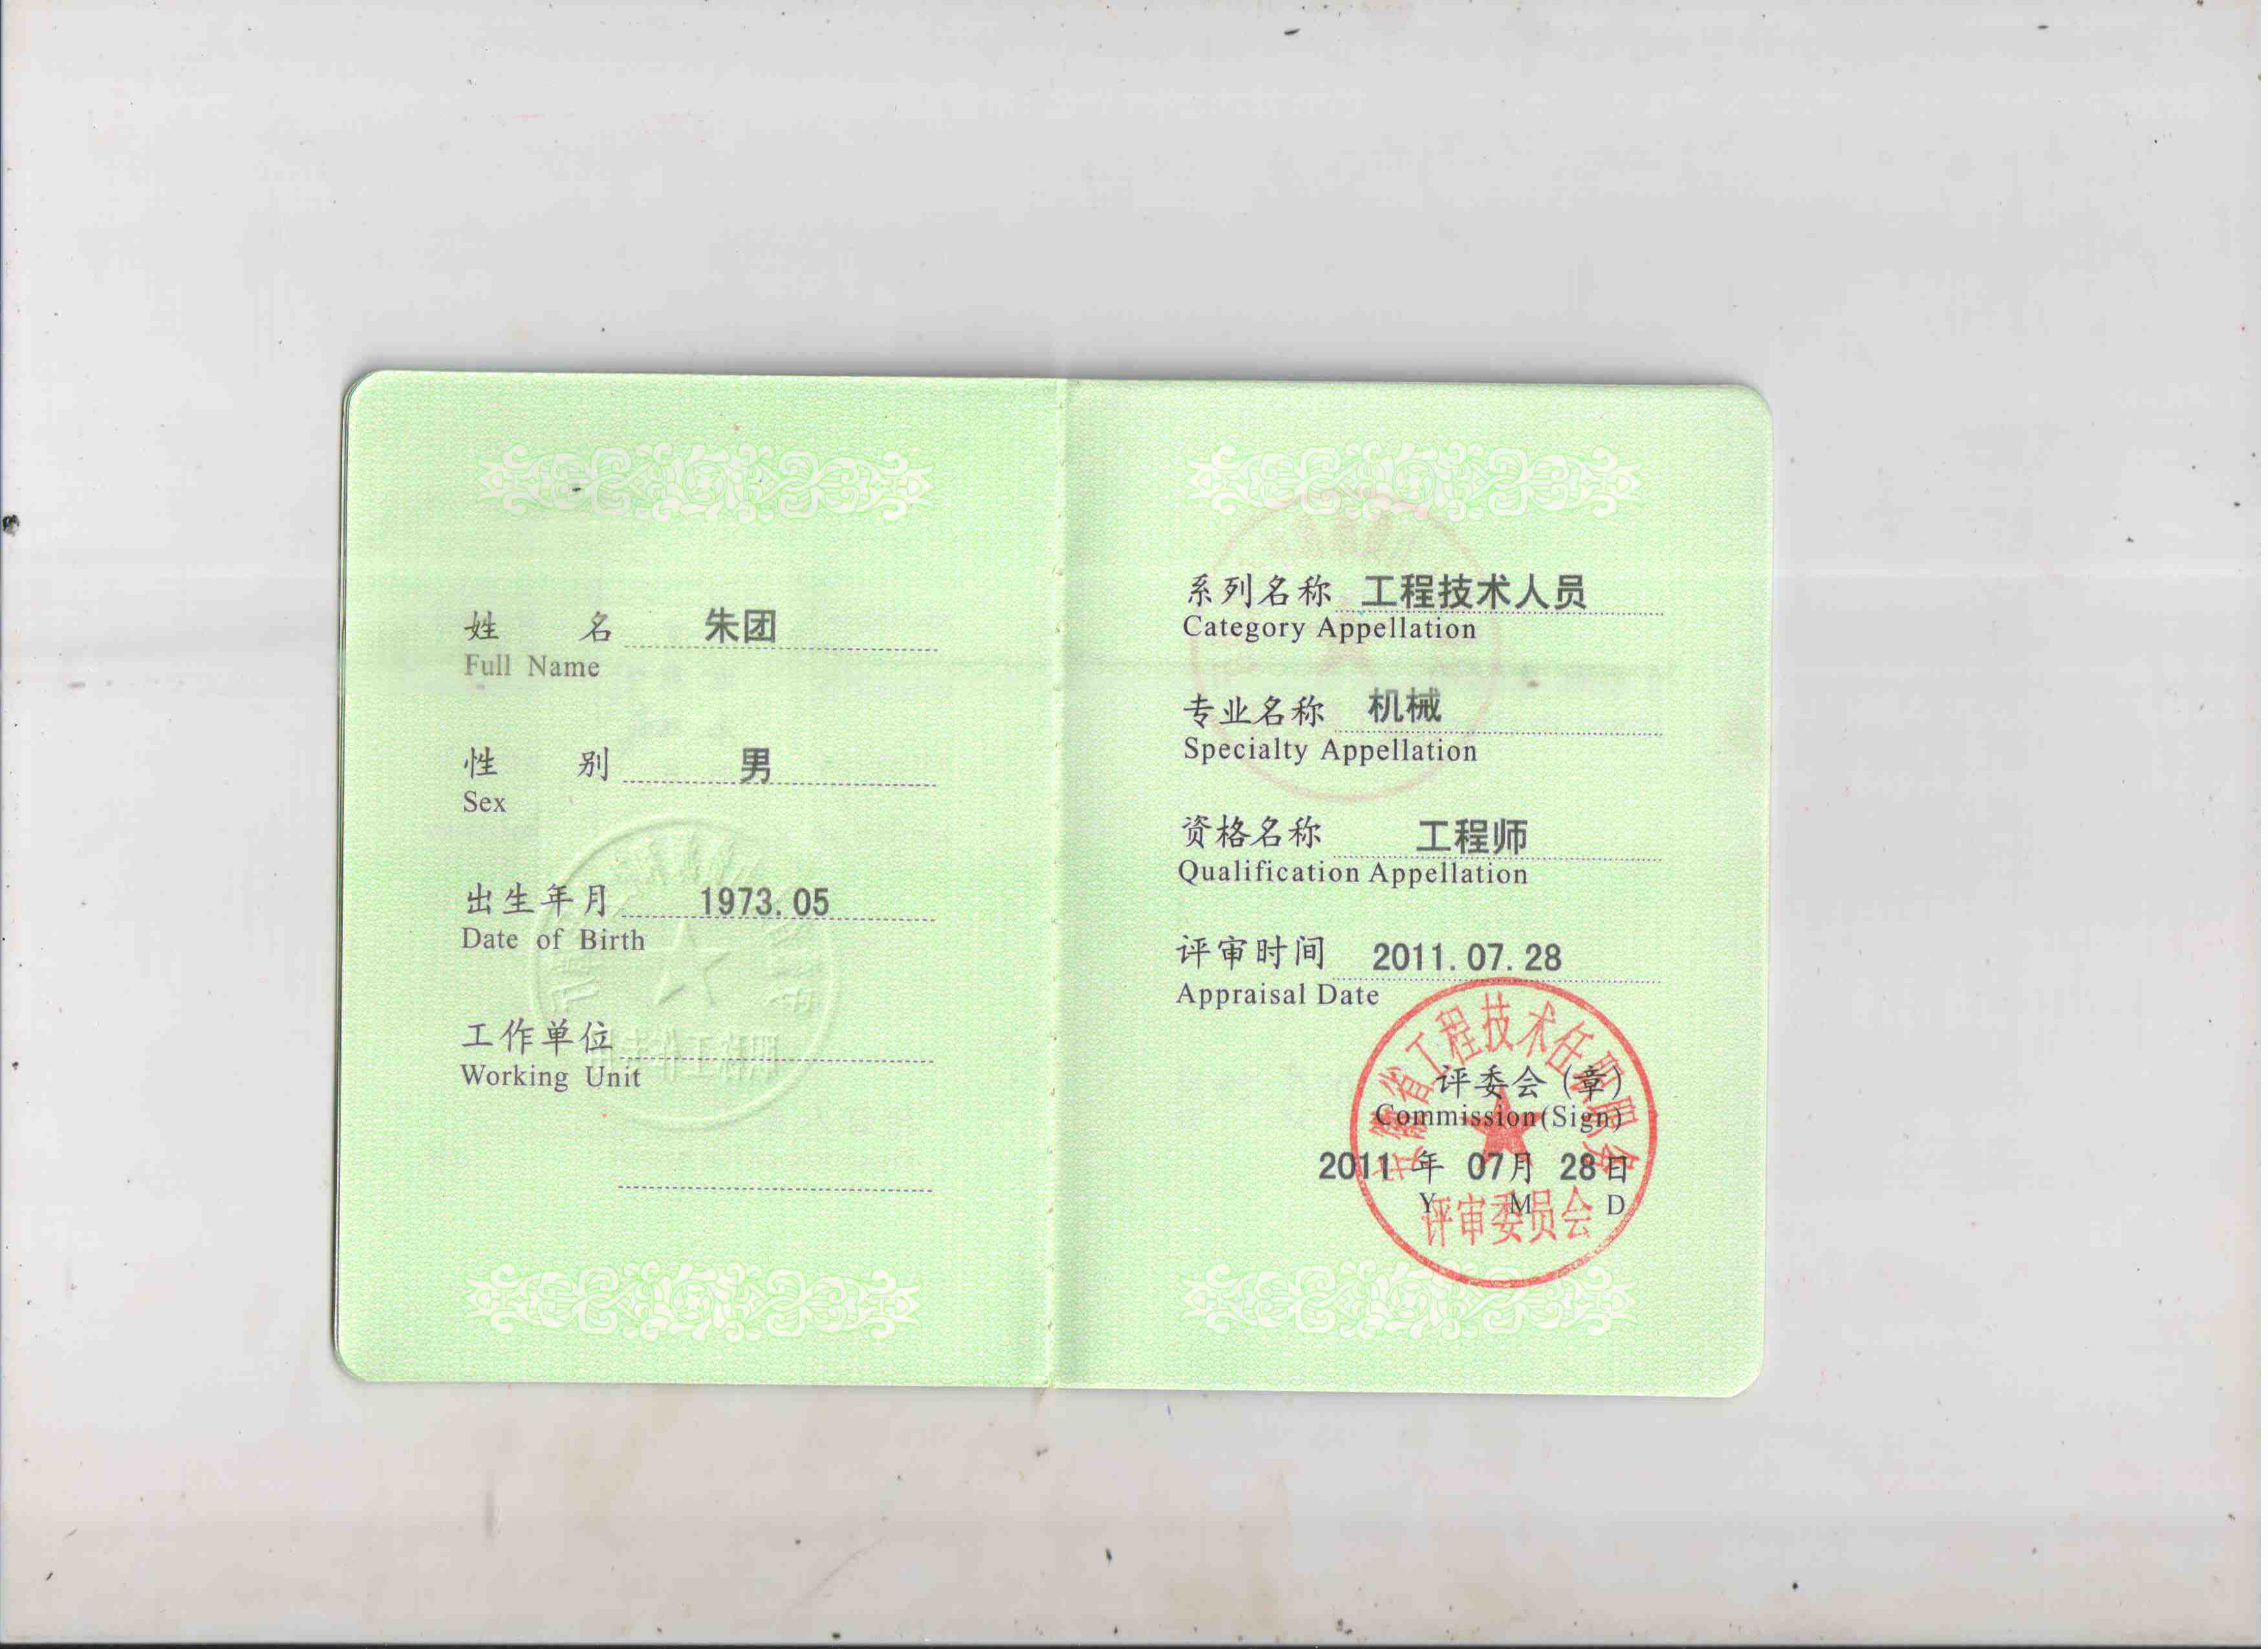 姓 名 朱团
Full Name
性 别 男
Sex
出生年月 1973.05
Date of Birth
工作单位
Working Unit
系列名称 工程技术人员
Category Appellation
专业名称 机械
Specialty Appellation
资格名称 工程师
Qualification Appellation
评审时间 2011.07.28
Appraisal Date
评委会(章)
Commission(Sign)
2011 年 07月 28日
Y M D
评审委员会